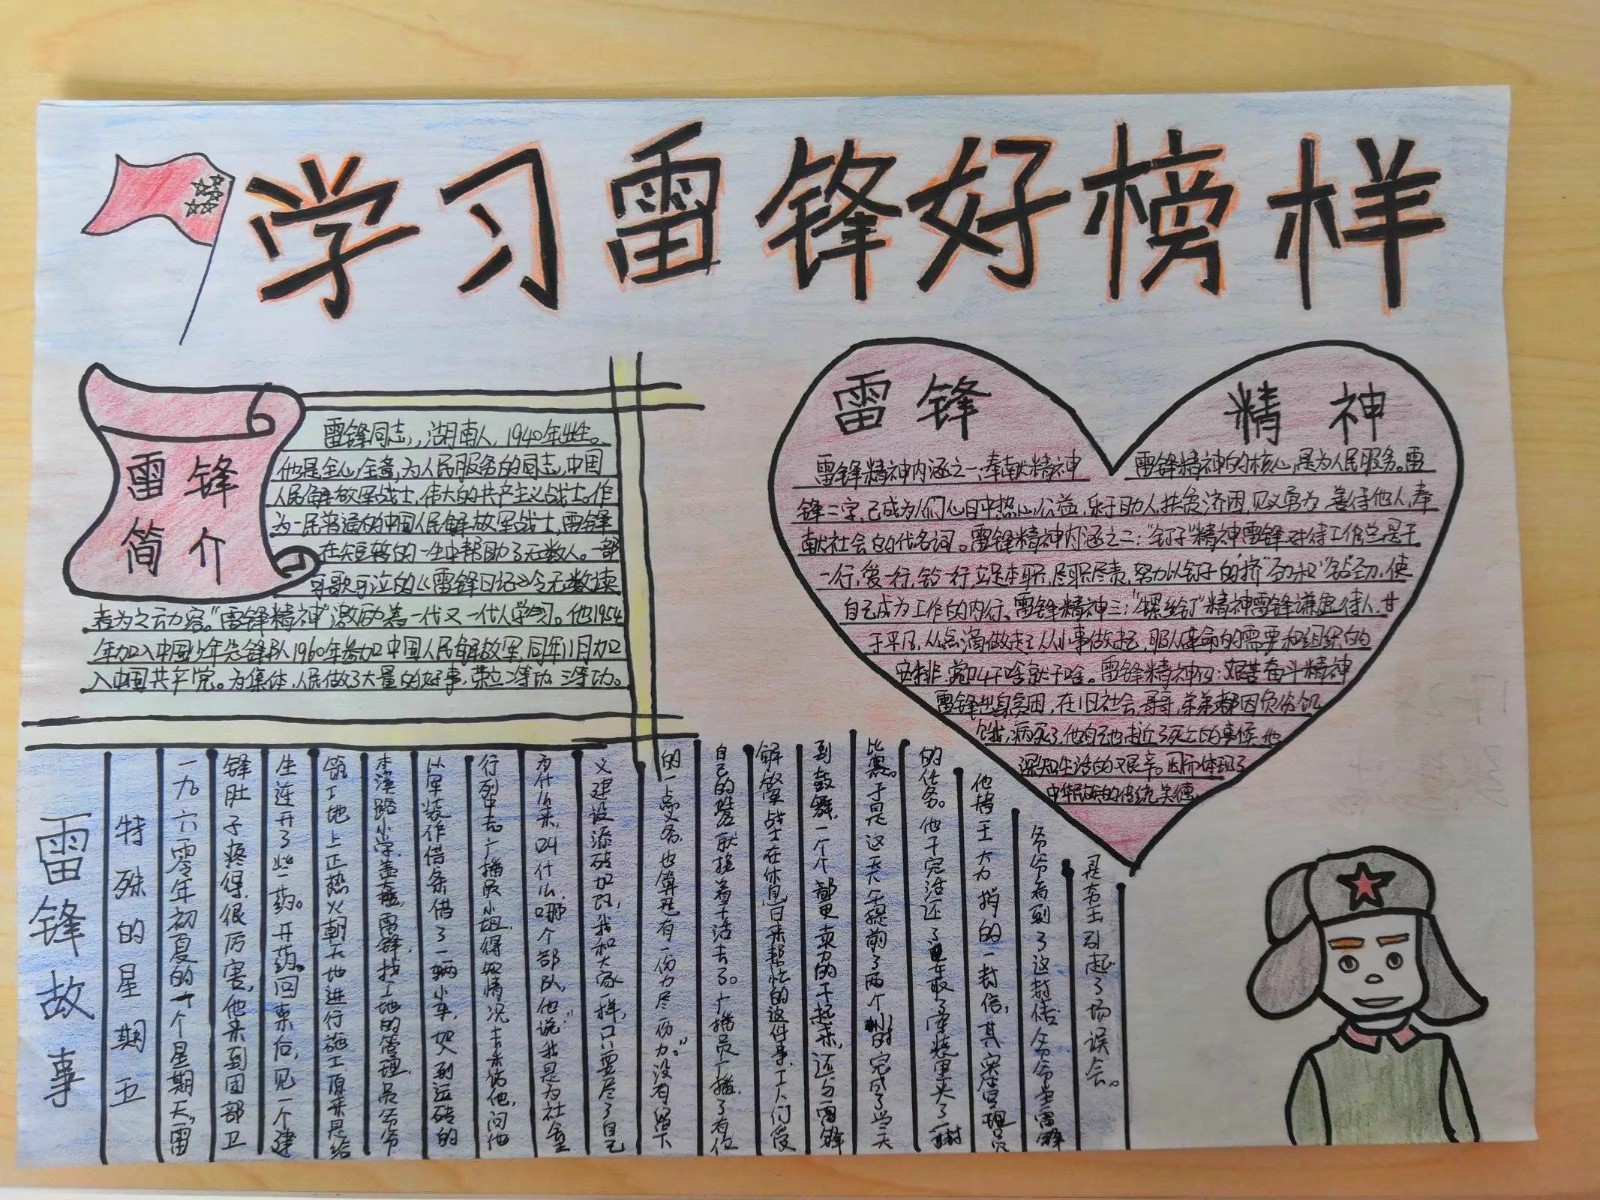 学习雷锋好榜样
雷锋
简介
雷锋同志,湖南人,1940年出生。
他是全心全意,为人民服务的同志,中国
人民解放军战士,伟大的共产主义战士。作
为一民普通的中国人民解放军战士,雷锋
在短暂的一生中帮助了无数人。一部
可歌可泣的《雷锋日记》令无数读
者为之动容。"雷锋精神"激励着一代又一代人学习。他1954
年加入中国少年先锋队1960年参加中国人民解放军,同年11月加
入中国共产党。为集体,人民做了大量的好事,荣立二等功 三等功。
雷锋 精神
雷锋精神内涵之一:奉献精神 雷锋精神的核心是为人民服务。雷
锋二字,已成为人们心目中热心公益,乐于助人扶贫济困,见义勇为,善待他人,奉
献社会的代名词。雷锋精神内涵之二:"钉子"精神雷锋对待工作总是干
一行,爱一行,钻一行立足本职,尽职尽责,努力以钉子的"挤"劲和"钻"劲,使
自己成为工作的内行。雷锋精神三:"螺丝钉"精神雷锋谦虚待人,甘
于平凡,从点滴做起,从小事做起,服从革命的需要和组织的
安排,叫干啥就干啥。雷锋精神四:艰苦奋斗精神
雷锋出身贫困,在旧社会哥哥,弟弟都因负伤饥
饿,病死了,他自己也有近了死亡的事候,他
深知生活的艰辛。因而体现了
中华民族的传统美德
雷锋故事
特殊的星期五
一九六零年初夏的一个星期天,雷
锋肚子疼得很厉害,他来到团部卫
生连开了些药。开药。回来后,见一个建
筑工地上正热火朝天地进行施工,原来是给
本溪路小学盖大楼,雷锋找工地的管理员爷爷
以军装作借条借了一辆小车,加入到运砖的
行列中去。广播员小姐得知情况去采访他,问他
为什么来,叫什么,哪个部队,他说:"我是为社会主
义建设添砖加瓦,我和大家一样,只要尽了自己
的一点义务,也算是有一份力尽一份力。"没有留下
自己的姓名就接着干活去了。广播员广播了有位
解放军战士在休息日来帮忙的这件事,工人们受
到鼓舞,一个个都更卖力的干起来,还与雷锋
比赛。于是这天,午提前了两个小时完成了当天
的任务。他干完活还
他捎王大力捎的一封信,其实是管理员
爷爷看到了这封信,爷爷是雷锋
是布军引起了场误会。